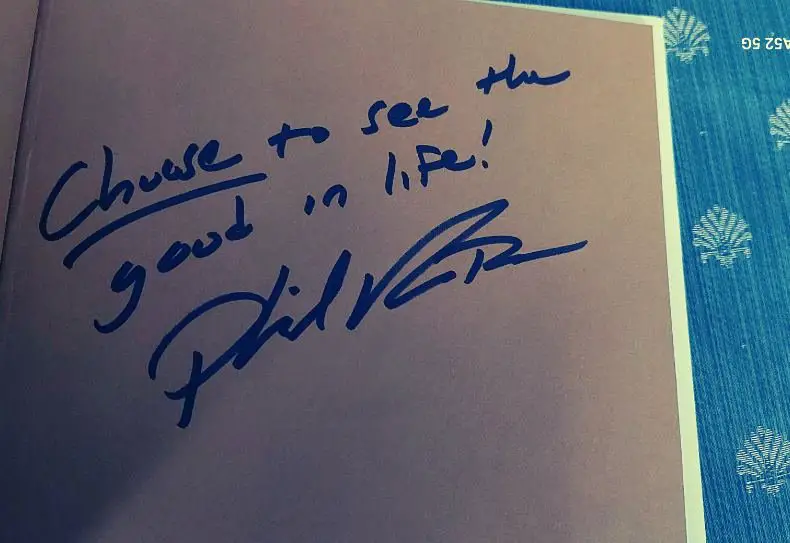 Choose to see the
good in life!
Phil
A52 5G